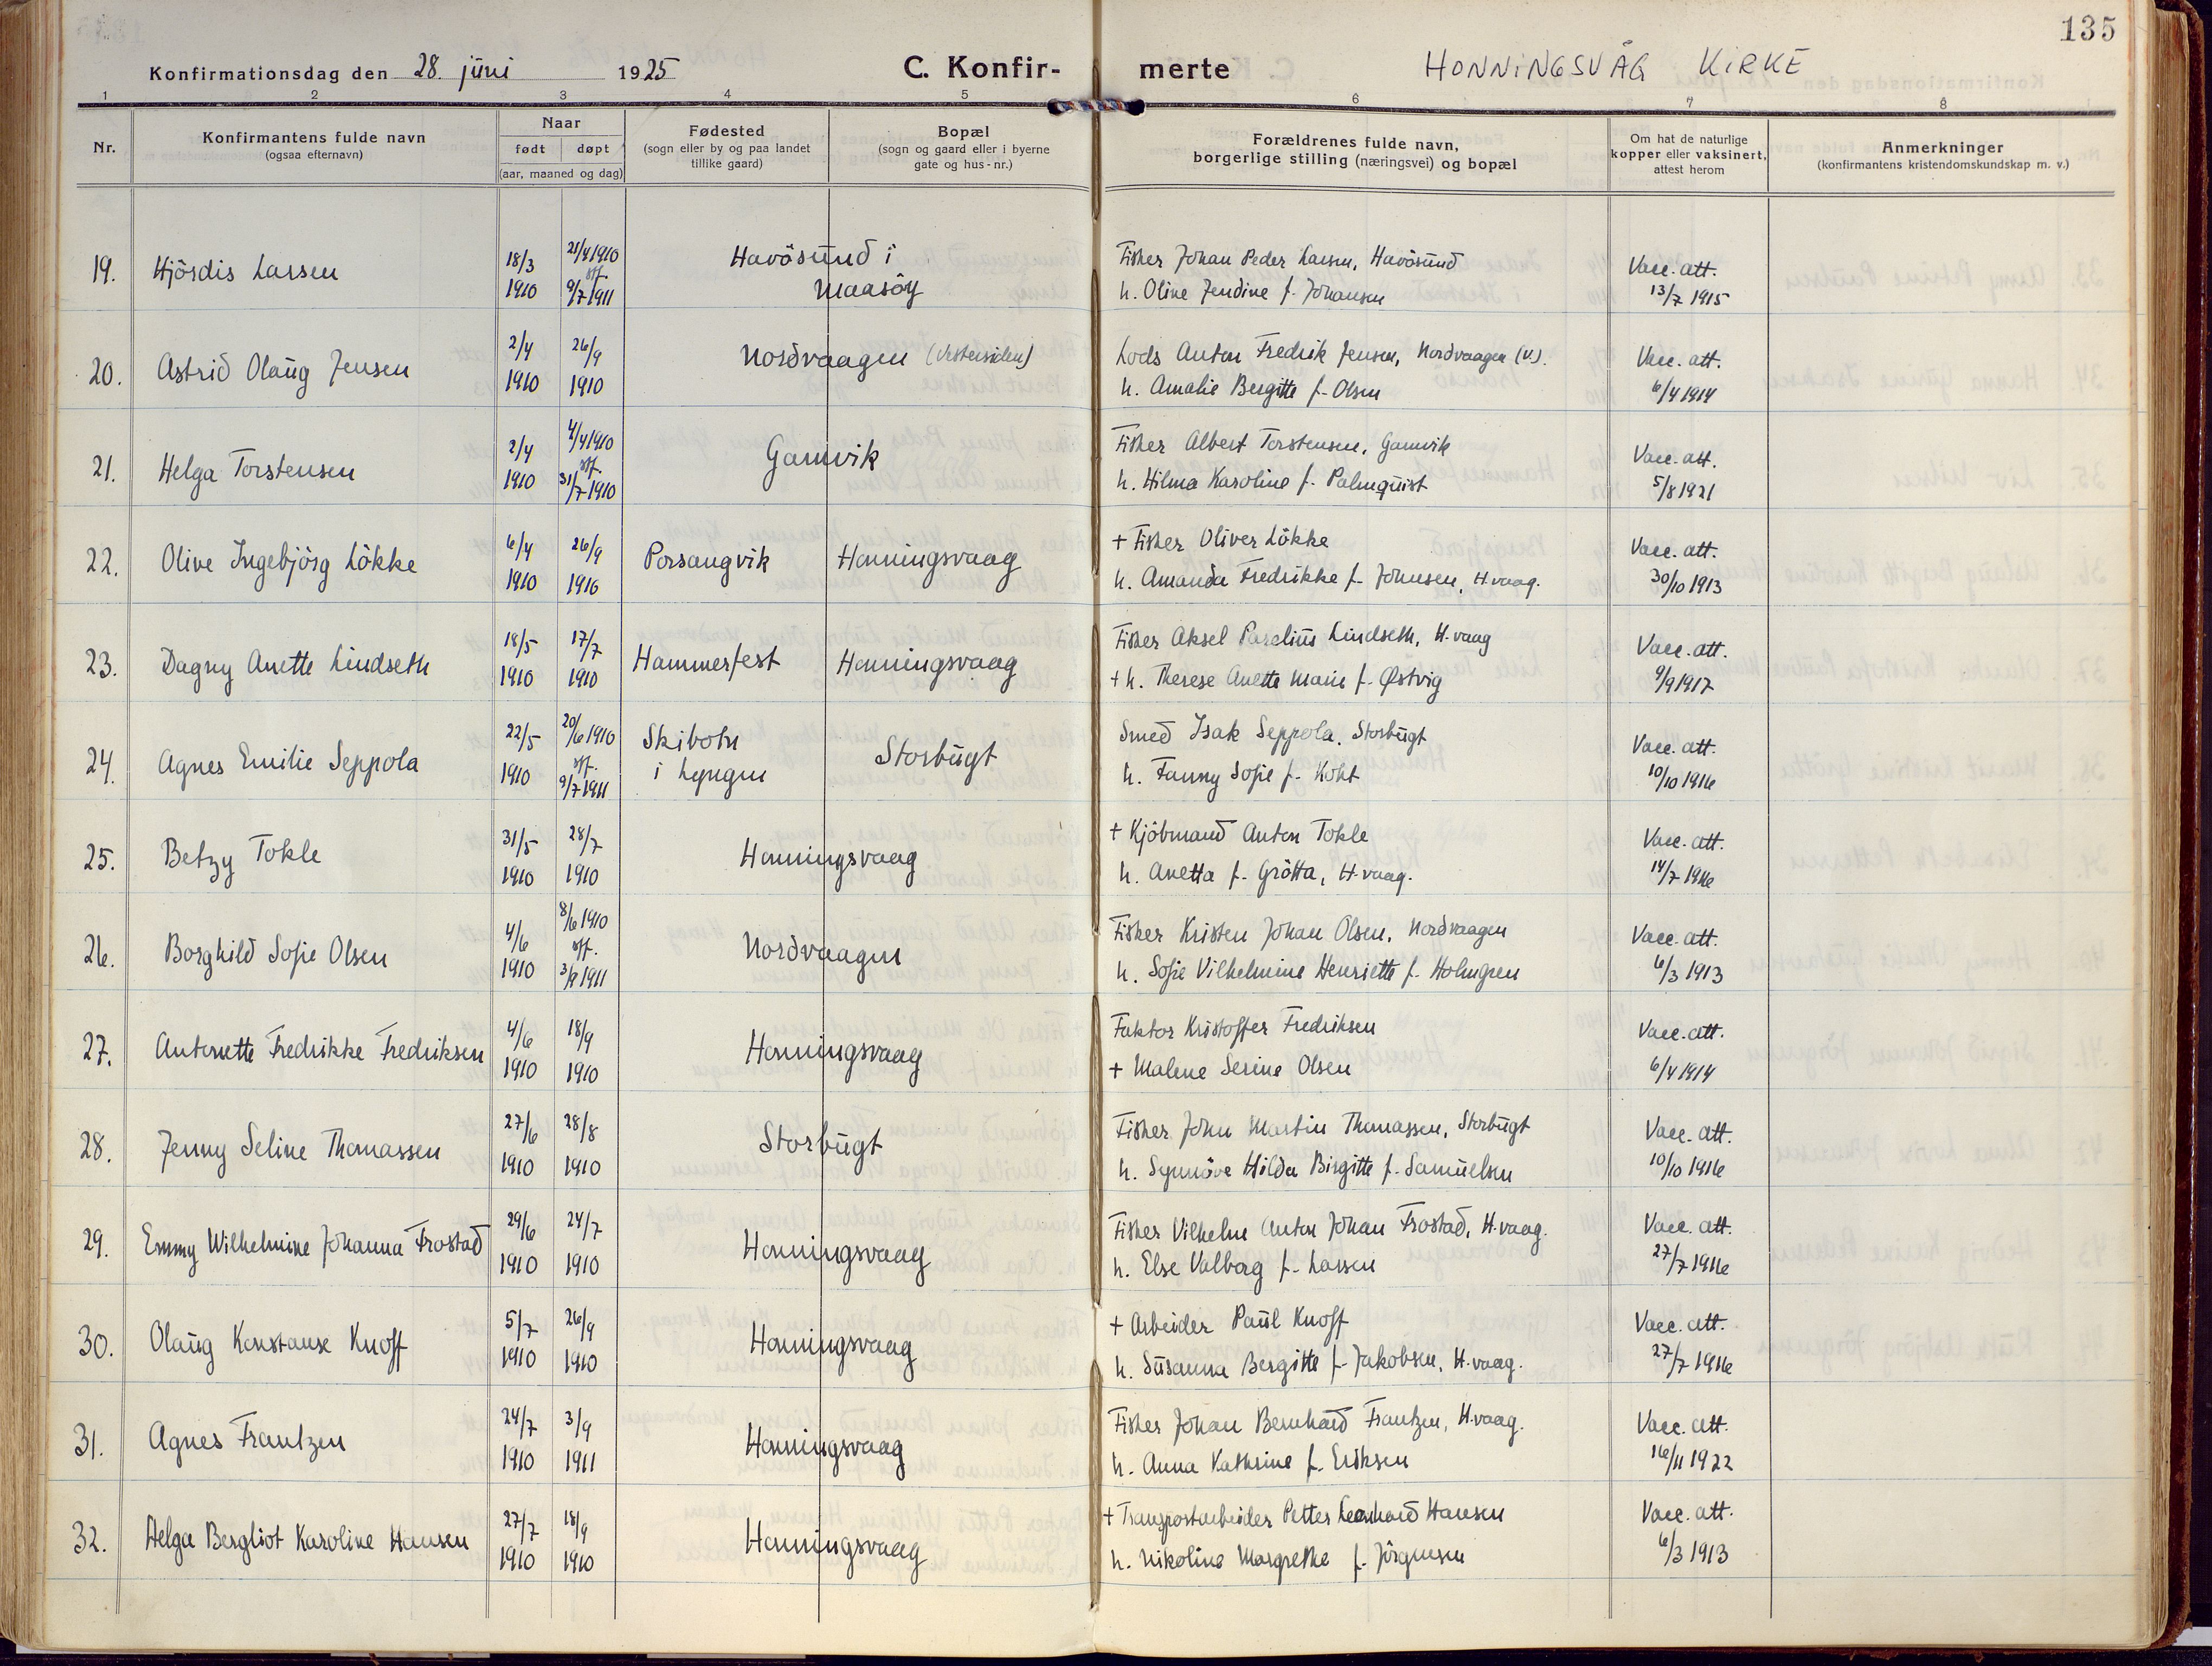 135
Konfirmationsdag den 28. jūni 1925
C. Konfir- merte
HONNINGSVÅG KIRKE
1 2 3 4 5 6 7 8
Nr.
Konfirmantens fulde navn
(ogsaa efternavn)
Naar
født døpt
(aar, maaned og dag)
Fødested
(sogn eller by og paa landet
tillike gaard)
Bopæl
(sogn og gaard eller i byerne
gate og hus-nr.)
Forældrenes fulde navn,
borgerlige stilling (næringsvei) og bopæl
Om hat de naturlige
kopper eller vaksinert,
attest herom
Anmerkninger
(konfirmantens kristendomskundskap m. v.)
19. Hjördis Larsen 18/3 1910 25/4 1910 stf. 9/7 1911 Havösūnd i Maasöy
Fisker Johan Peder Larsen, Havösūnd
h. Oline Jendine f. Johansen
Vacc. att. 13/7 1915
20. Astrid Olaūg Jensen 2/4 1910 26/9 1910 Nordvaagen (Vestersiden)
Lods Anton Fredrik Jensen, Nordvaagen (V.).
h. Amalie Bergitte f. Olsen
Vacc. att. 6/4 1914
21. Helga Torstensen 2/4 1910 4/4 1910 stf. 31/7 1910 Gamvik
Fisker Albert Torstensen, Gamvik
h. Hilma Karoline f. Palmqūist
Vacc. att. 5/8 1921
22. Olive Ingebjörg Lökke 6/4 1910 26/9 1910 Porsangvik Honningsvaag
+ Fisker Oliver Lökke
h. Amanda Fredrikke f. Johnsen, H.vaag.
Vacc. att. 30/10 1913
23. Dagny Anette Lindseth 18/5 1910 17/7 1910 Hammerfest Honningsvaag
Fisker Aksel Parelius Lindseth, H.vaag
+ h. Therese Anette Marie f. Østvig
Vacc. att. 9/9 1917
24. Agnes Emilie Seppola 22/5 1910 20/6 1910 stf. 9/7 1911 Skibotn i Lyngen Storbūgt
Smed Isak Seppola, Storbūgt
h. Fanny Sofie f. Koht
Vacc. att. 10/10 1916
25. Betzy Tokle 31/5 1910 28/7 1910 Honningsvaag
+ Kjöbmand Anton Tokle
h. Anetta f. Grötta, H.vaag.
Vacc. att. 14/7 1916
26. Borghild Sofie Olsen 4/6 1910 8/6 1910 stf. 3/9 1911 Nordvaagen
Fisker Kristen Johan Olsen, Nordvaagen
h. Sofie Vilhelmine Henriette f. Holmgren
Vacc. att. 6/3 1913
27. Antonette Fredrikke Fredriksen 4/6 1910 18/9 1910 Honningsvaag
Faktor Kristoffer Fredriksen
+ Malene Serine Olsen
Vacc. att. 6/4 1914
28. Jenny Seline Thomassen 27/6 1910 28/8 1910 Storbūgt
Fisker John Martin Thomassen, Storbūgt
h. Synnöve Hilda Birgitte f. Samūelsen
Vacc. att. 10/10 1916
29. Emmy Wilhelmine Johanna Frostad 29/6 1910 24/7 1910 Honningsvaag
Fisker Vilhelm Anton Johan Frostad, H.vaag.
h. Else Valborg f. Larsen
Vacc. att. 27/7 1916
30. Olaūg Konstanse Knoff 5/7 1910 26/9 1910 Honningsvaag
+ Arbeider Paūl Knoff
h. Sūsanna Bergitte f. Jakobsen, H.vaag.
Vacc. att. 27/7 1916
31. Agnes Frantzen 24/7 1910 3/9 1911 Honningsvaag
Fisker Johan Bernhard Frantzen, H.vaag.
h. Anna Kathrine f. Eriksen
Vacc. att. 16/11 1922
32. Helga Bergliot Karoline Hansen 27/7 1910 18/9 1910 Honningsvaag
+ Transportarbeider Petter Leonhard Hansen
h. Nikoline Margrethe f. Jörgensen
Vacc. att. 6/3 1913